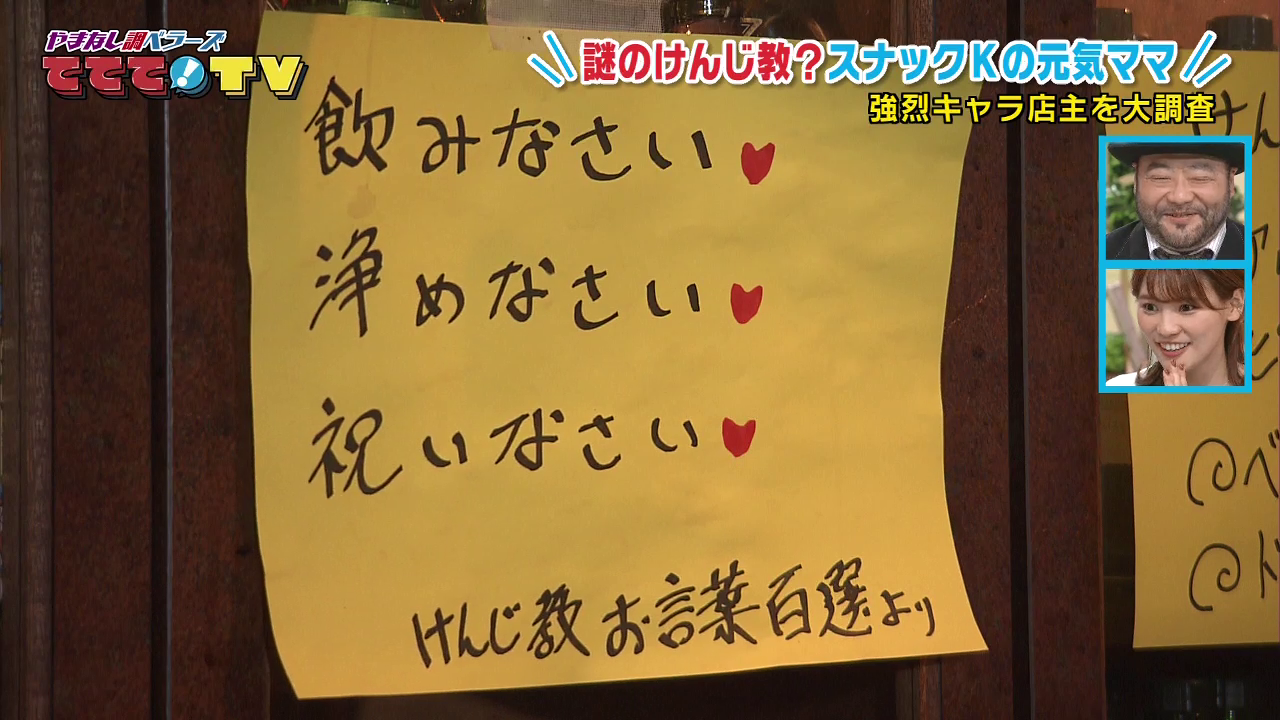 やまなし調べラーズ
ててて!TV
謎のけんじ教?スナックKの元気ママ
強烈キャラ店主を大調査
飲みなさい♥
浄めなさい♥
祝いなさい♥
けんじ教 お言葉百選より
けん
@ベ
@ド